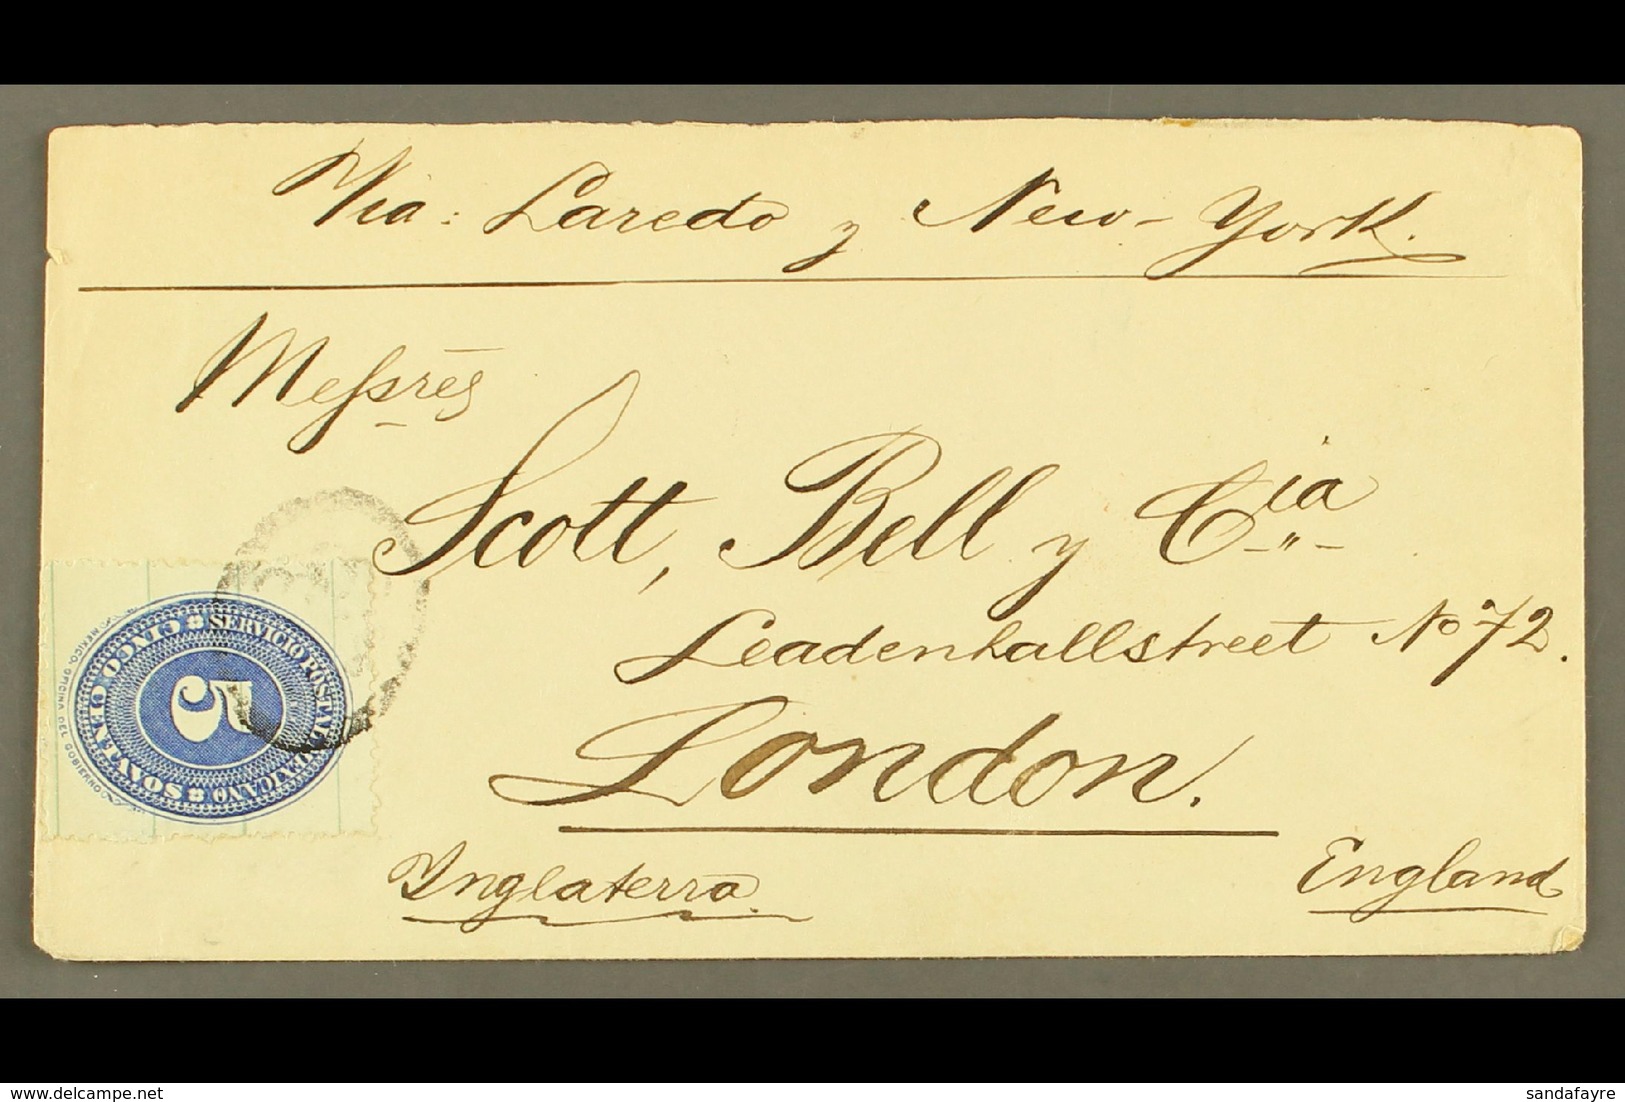 Via: Laredo y New-York.
Messrēs
Scott, Bell y Cia
Leadenhallstreet No 72.
London.
Inglaterra.
England
SERVICIO POSTAL MEXICANO
5
CINCO CENTAVOS
MEXICO-OFICINA DEL GOBIERNO
delcampe.net
sandafayre